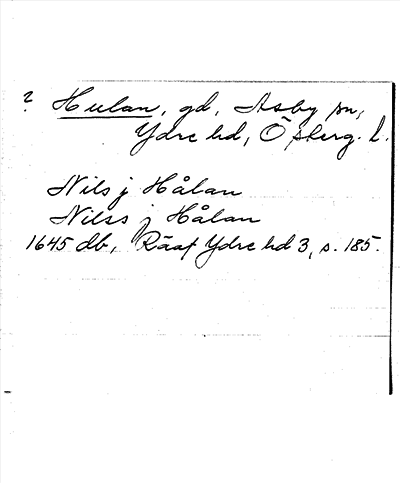 ? Hulan, gd, Asby sn,
Ydre hd, Österg. l.
Nils j Hålan
Nilss j Hålan
1645 db, Rääf Ydre hd 3, s. 185.